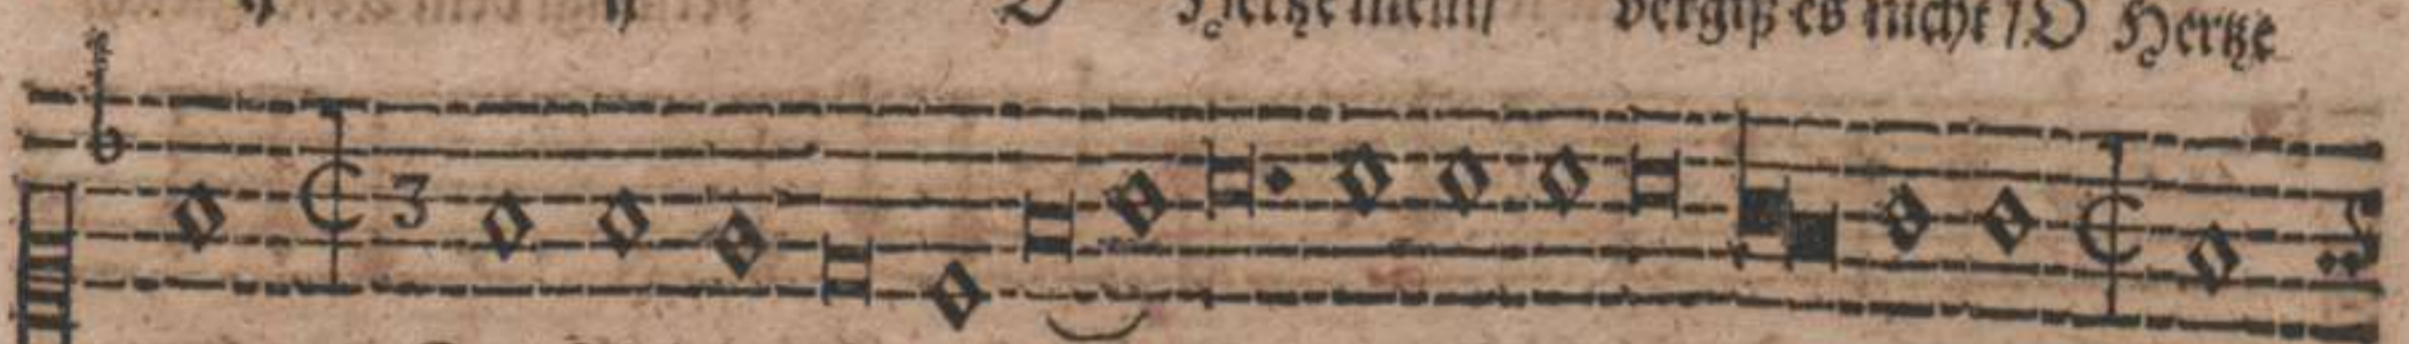 O Hertze mein / vergiß es nicht / O Hertze
3